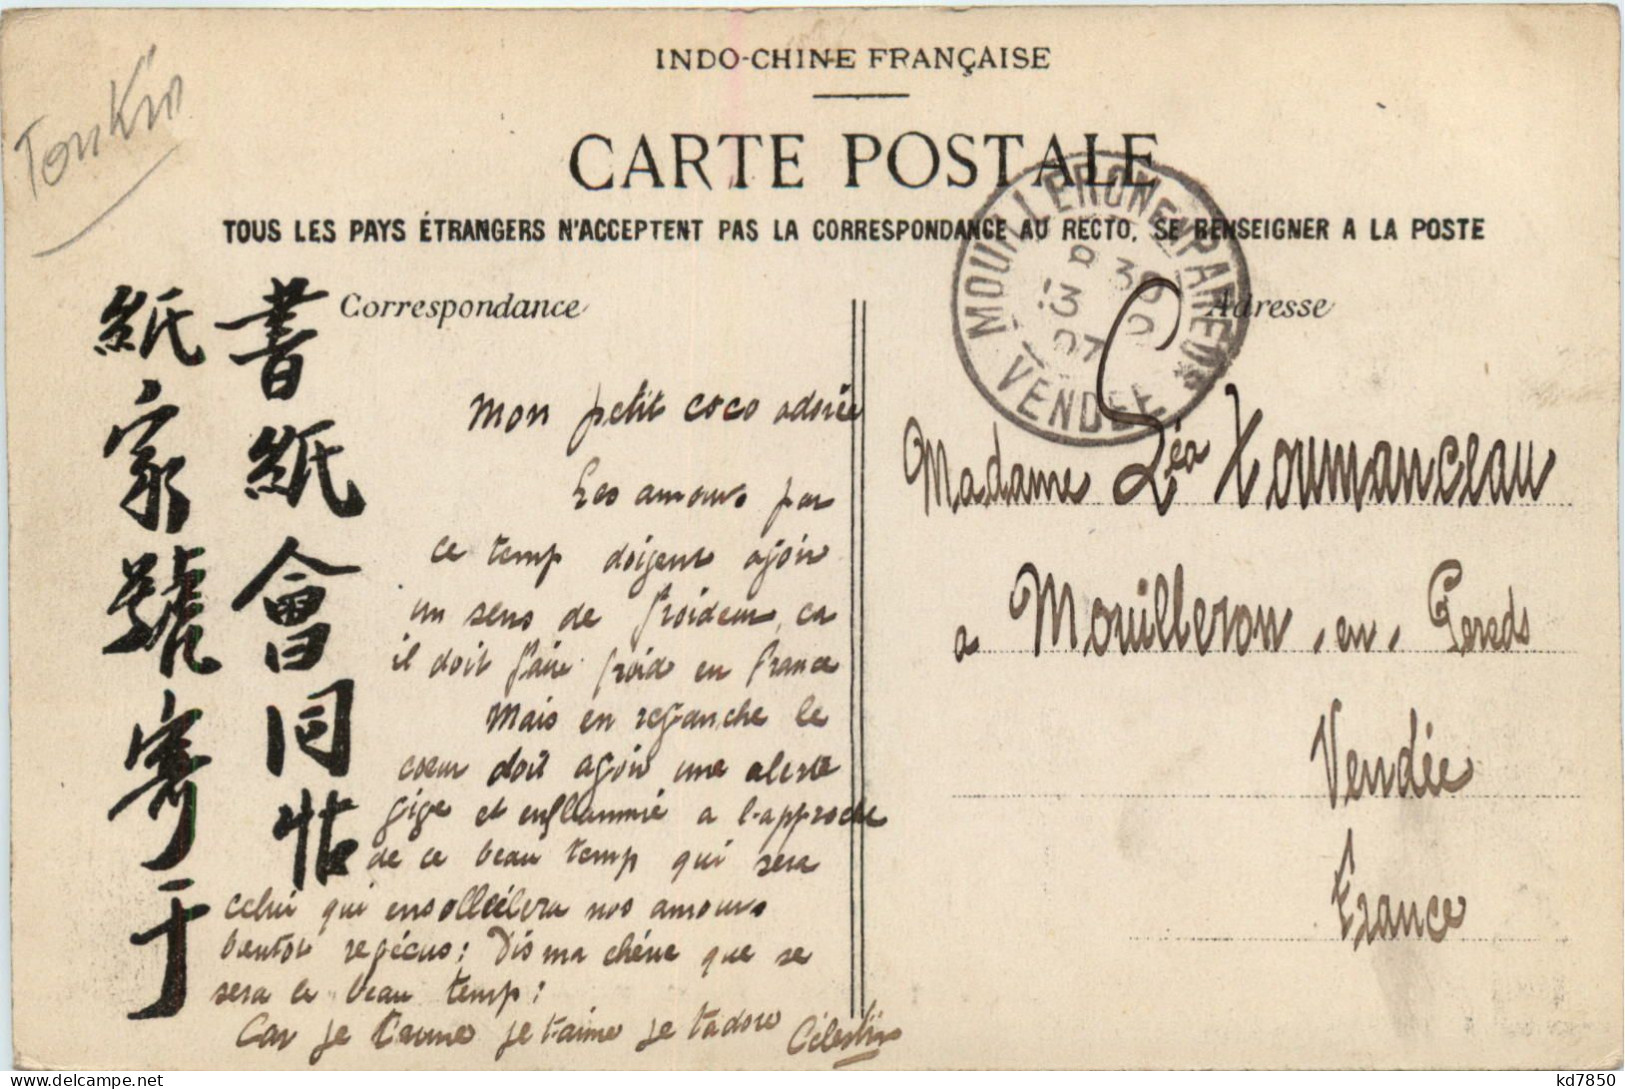 Tonkin
INDO-CHINE FRANÇAISE
CARTE POSTALE
TOUS LES PAYS ÉTRANGERS N'ACCEPTENT PAS LA CORRESPONDANCE AU RECTO. SE RENSEIGNER A LA POSTE
MOUILLERON EN PAREDS
VENDÉE
Correspondance
Adresse
書紙會同帖
紙家號寄于
Mon petit coco adorée
Les amours par
ce temp doivent avoir
un sens de froideur, ca
il doit faire froid en France
Mais en revanche le
coeur doit avoir une alerte
vive et enflammié a l'approche
de ce beau temp qui sera
celui qui ensolleilera nos amours
bientot revécus: Dis ma chérie que se
sera le beau temp:
Car je t'aime je t'aime je tadore Célestin
Madame Léa Toumanceau
a Mouilleron, en, Pereds
Vendée
France
kd7850